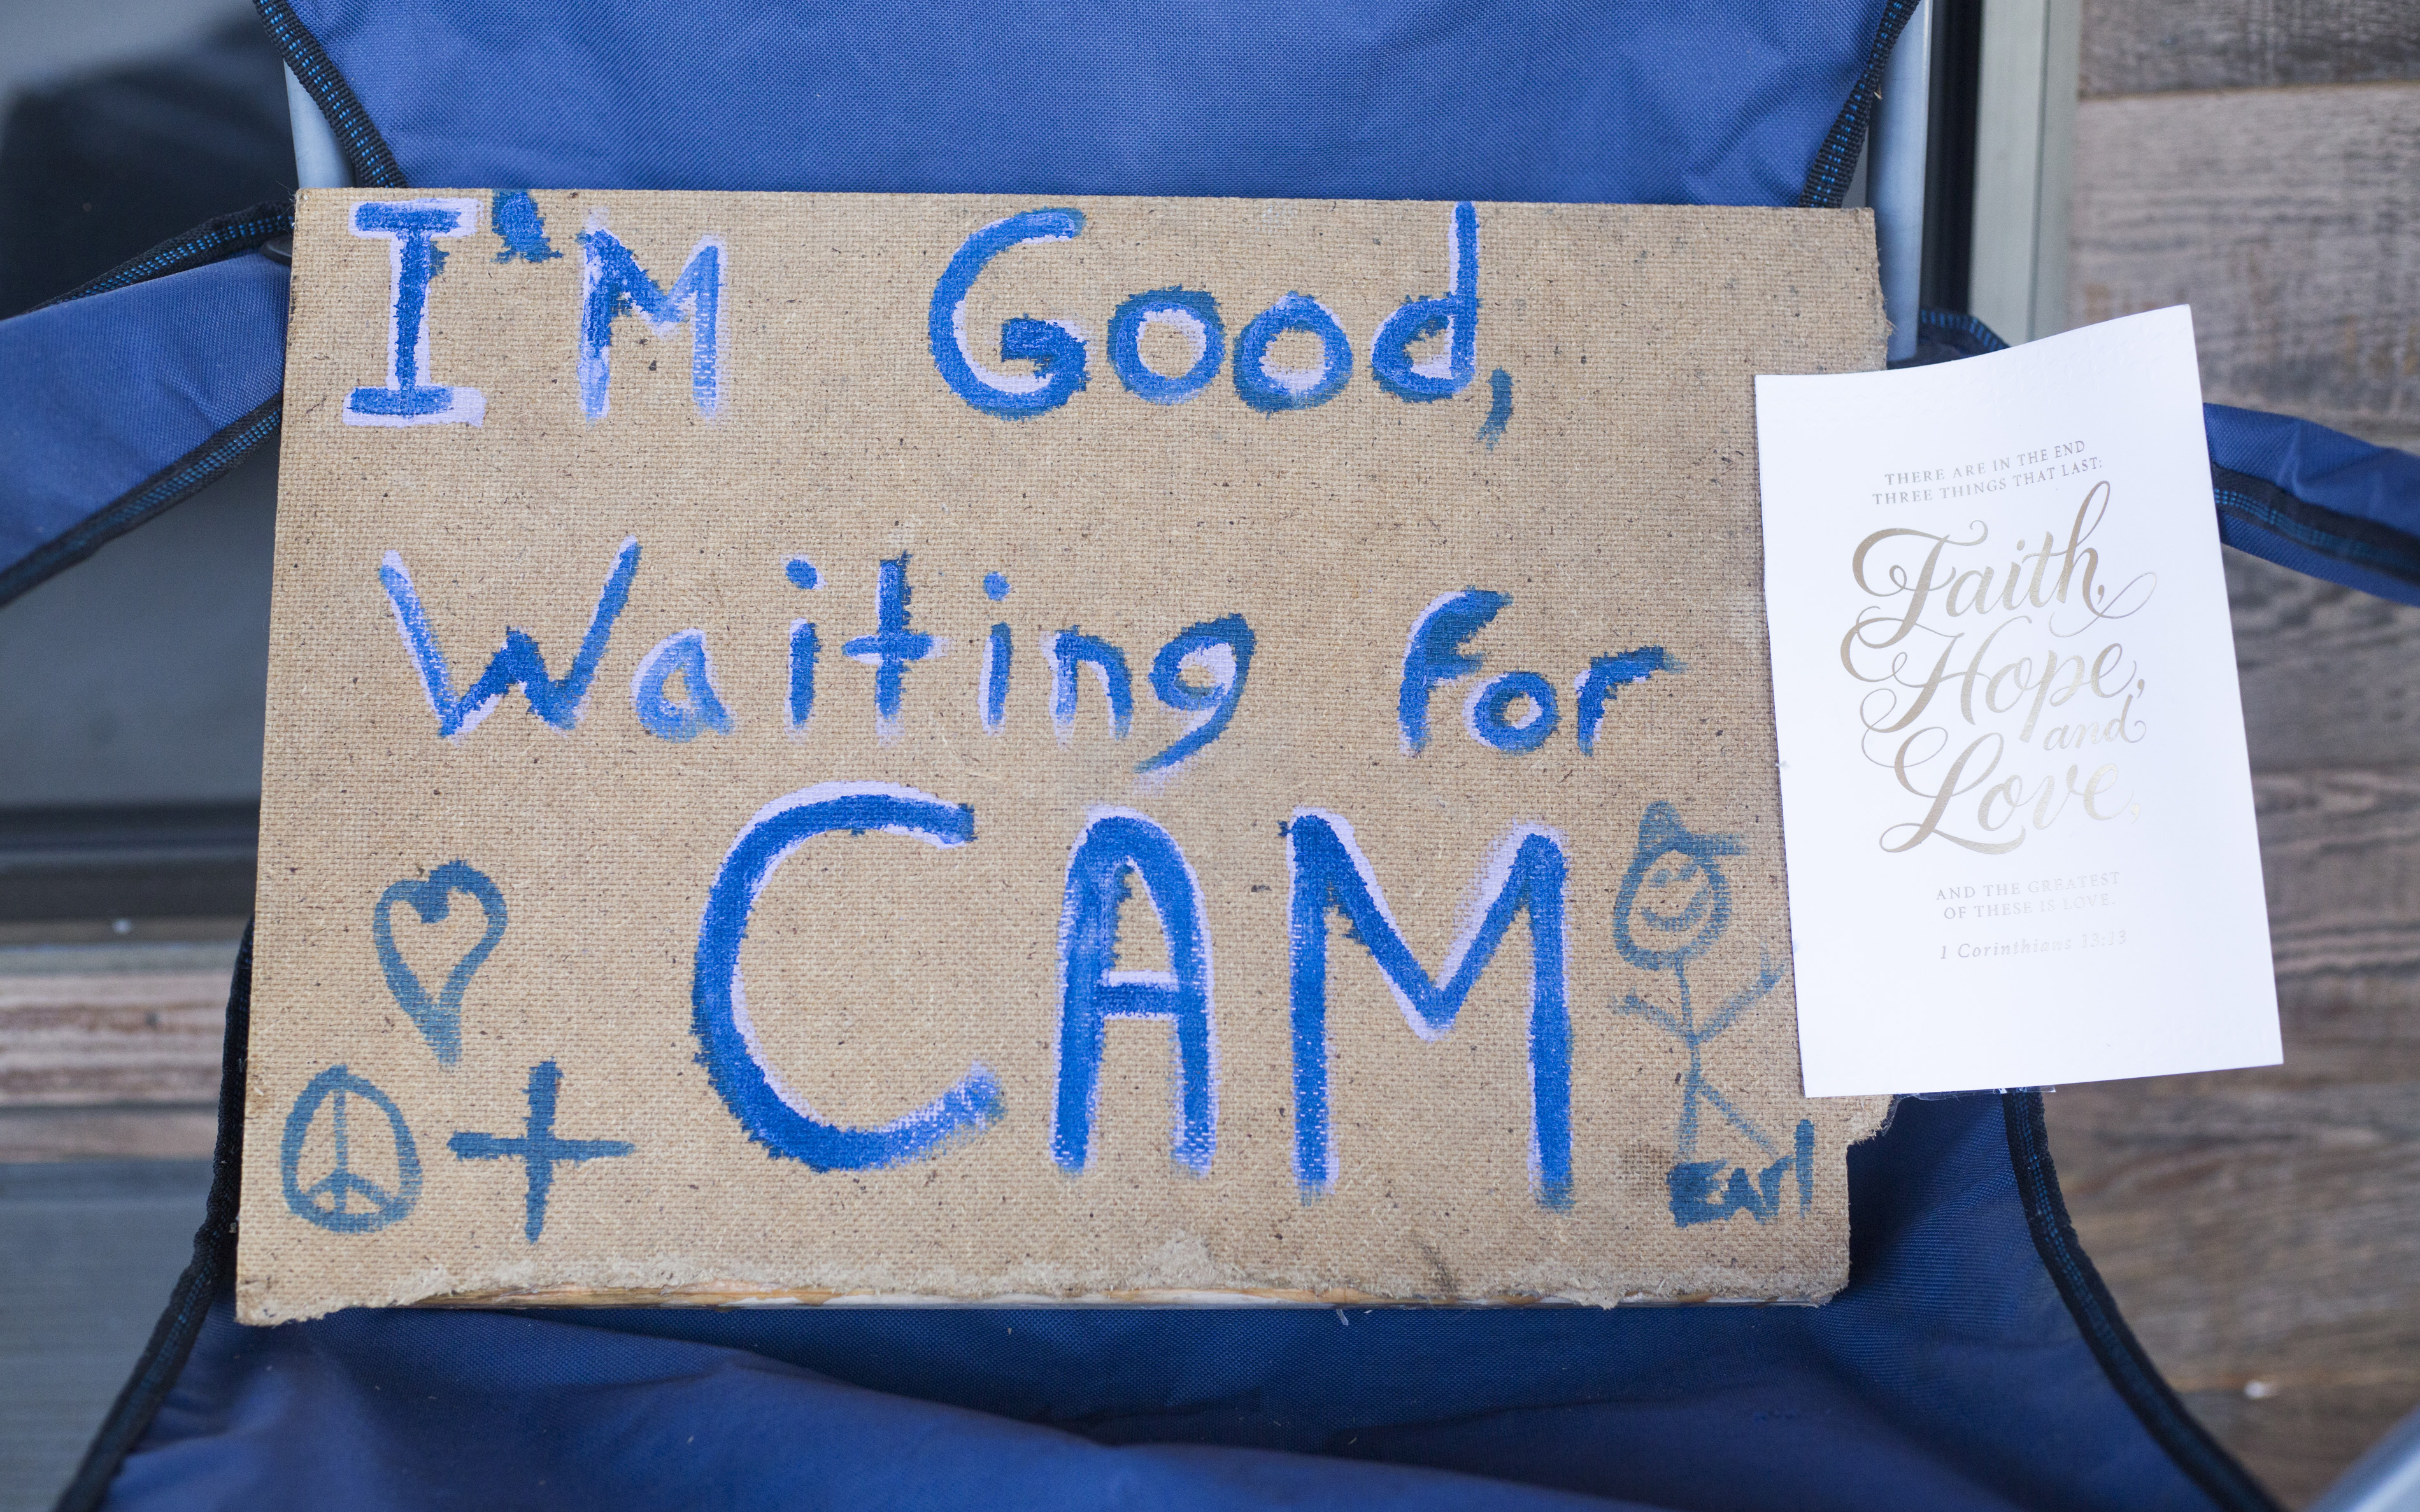 I'M Good,
Waiting For
CAM
Earl
THERE ARE IN THE END
THREE THINGS THAT LAST:
Faith,
Hope,
and
Love,
AND THE GREATEST
OF THESE IS LOVE.
1 Corinthians 13:13